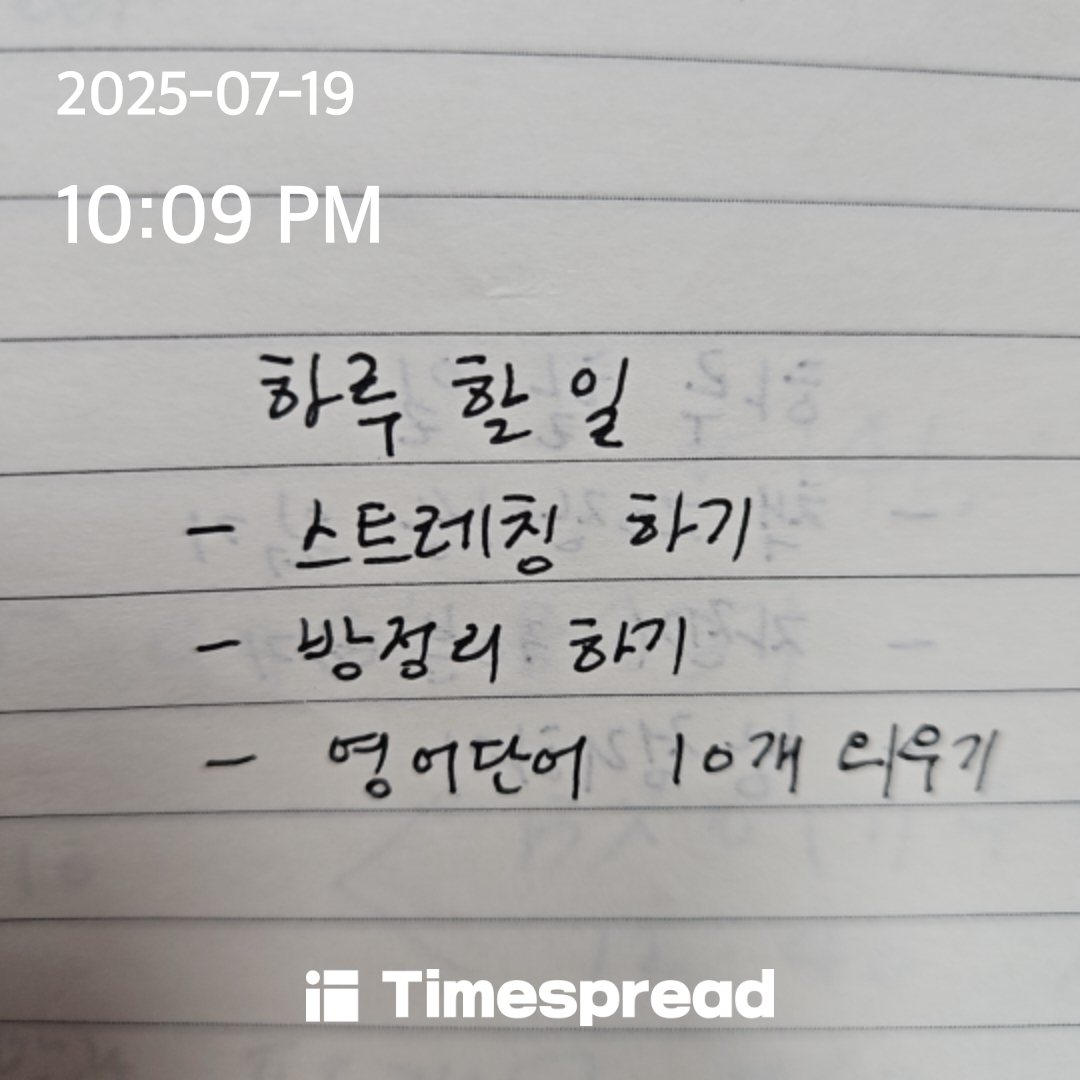 2025-07-19
10:09 PM
하루 할 일
- 스트레칭 하기
- 방정리 하기
- 영어단어 10개 외우기
Timespread